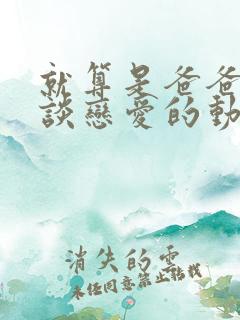 就算是爸爸
談戀愛的動
消失的雲
未經同意禁止轉載